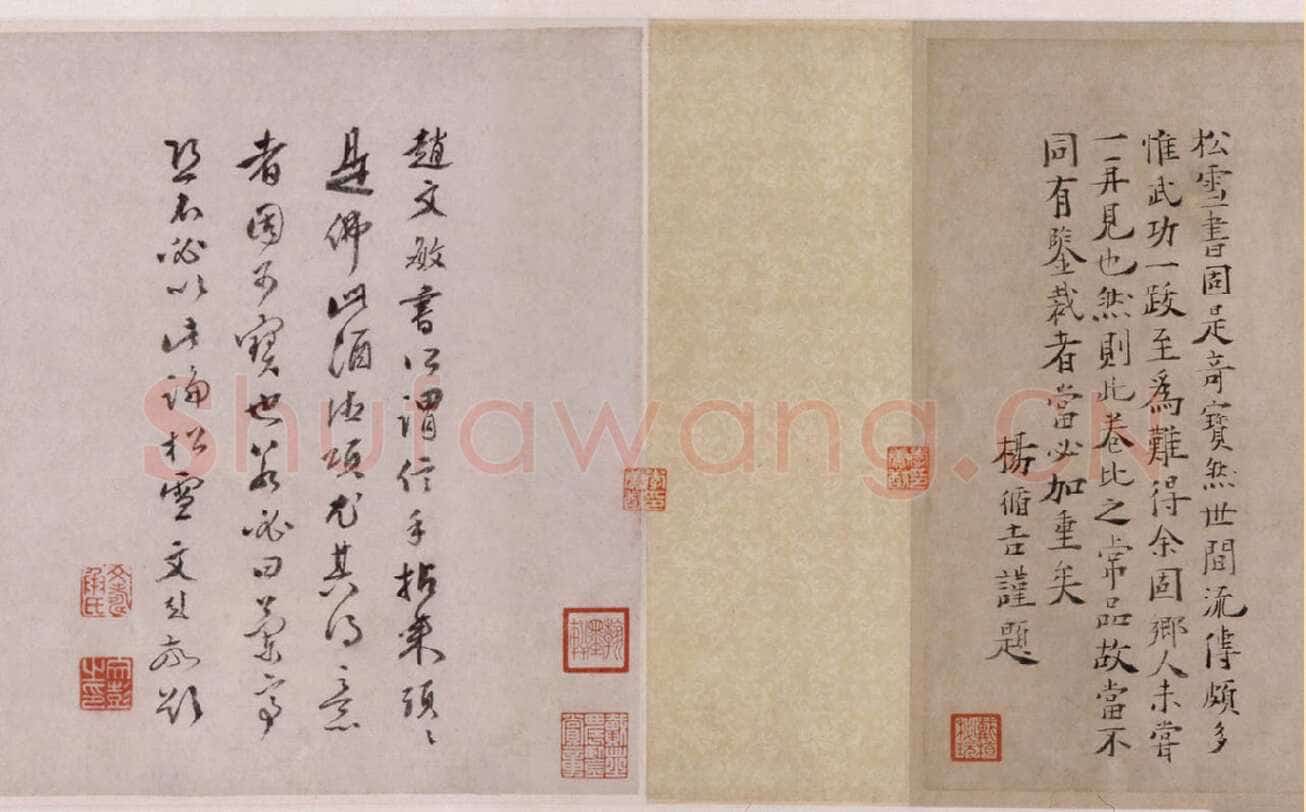 松雪書固是奇寶然世間流傳頗多
惟武功一跋至爲難得余固鄉人未嘗
一再見也然則此卷比之常品故當不
同有鑒裁者當必加重矣
楊循吉謹題
趙文敏書所謂信手拈來頭〻
是佛此酒德頌尤其得意
者固可寶也若必曰蘭亭
恐不必以此論松雪文彭敬題
文壽承氏
文彭之印
Shufawang.CN